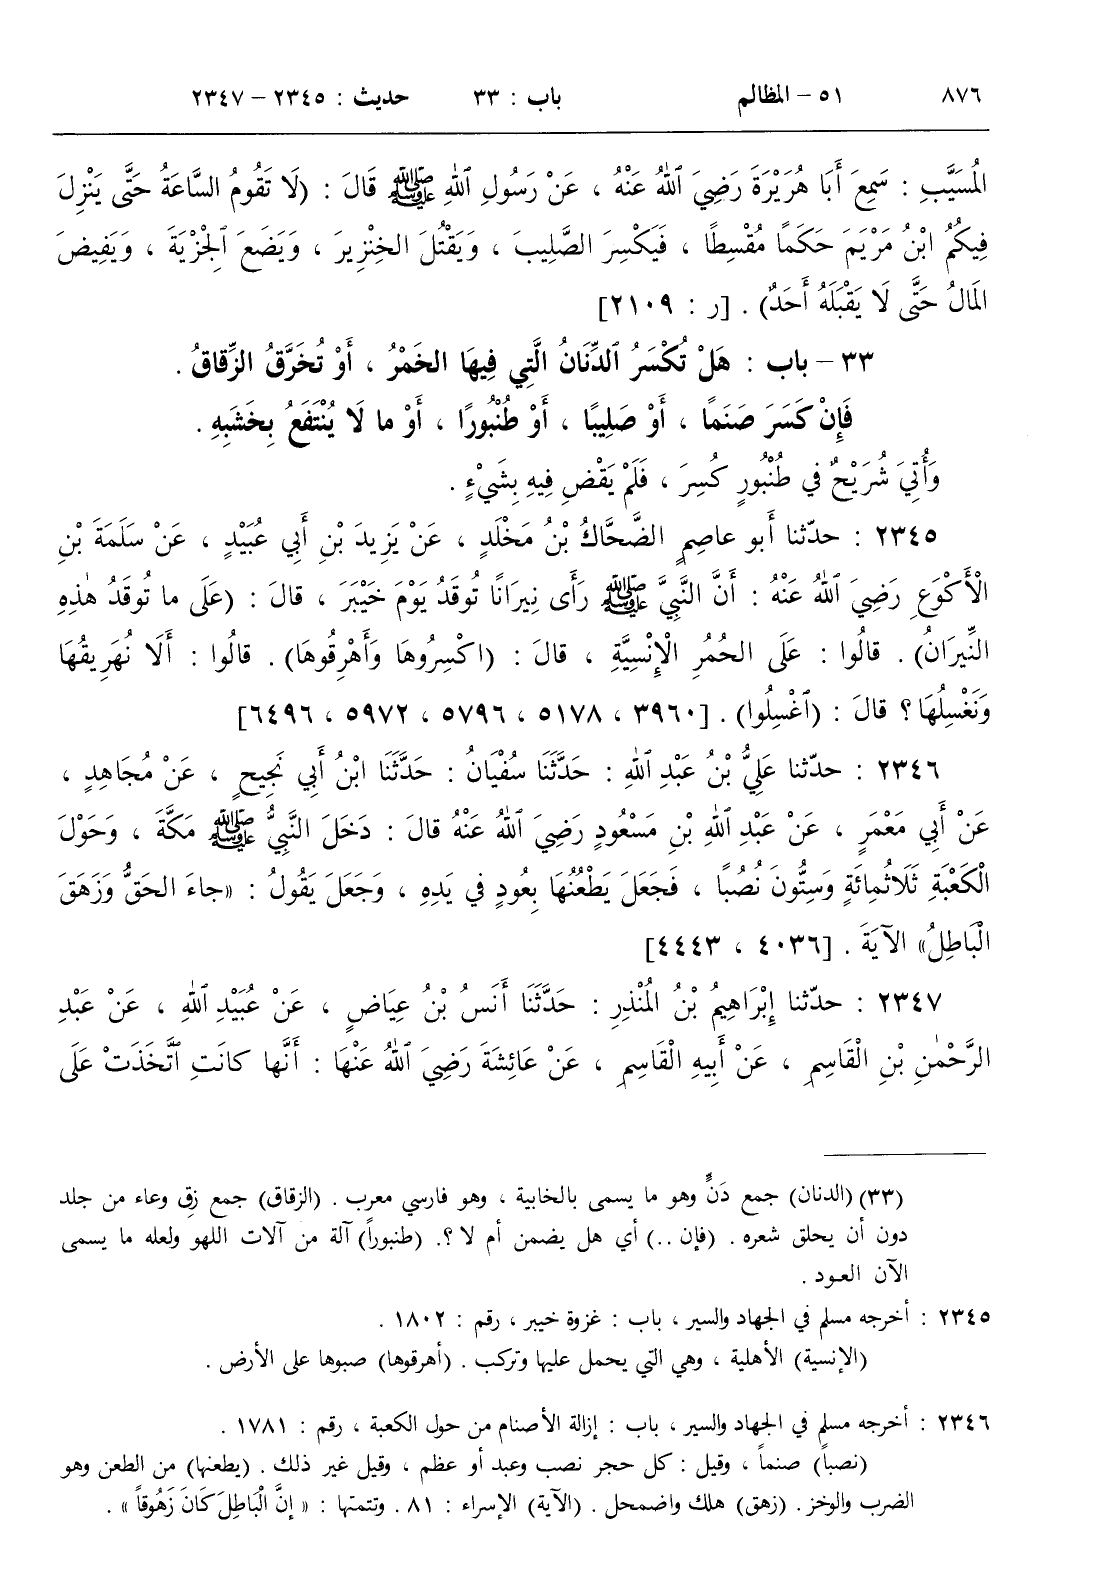 ٨٧٦ ٥١ – المظالم باب : ٣٣ حديث : ٢٣٤٥ – ٢٣٤٧
المُسَيَّبِ : سَمِعَ أَبَا هُرَيْرَةَ رَضِيَ ٱللهُ عَنْهُ ، عَنْ رَسُولِ ٱللهِ ﷺ قَالَ : (لَا تَقُومُ السَّاعَةُ حَتَّى يَنْزِلَ
فِيكُمُ ابْنُ مَرْيَمَ حَكَمًا مُقْسِطًا ، فَيَكْسِرَ الصَّلِيبَ ، وَيَقْتُلَ الخِنْزِيرَ ، وَيَضَعَ ٱلْجِزْيَةَ ، وَيَفِيضَ
المَالُ حَتَّى لَا يَقْبَلَهُ أَحَدٌ) . [ر : ٢١٠٩]
٣٣ – باب : هَلْ تُكْسَرُ ٱلدِّنَانُ الَّتِي فِيهَا الخَمْرُ ، أَوْ تُخَرَّقُ الزِّقاقُ .
فَإِنْ كَسَرَ صَنَمًا ، أَوْ صَلِيبًا ، أَوْ طُنْبُورًا ، أَوْ ما لَا يُنْتَفَعُ بِخَشَبِهِ .
وَأُتِيَ شُرَيْحٌ في طُنْبُورٍ كُسِرَ ، فَلَمْ يَقْضِ فِيهِ بِشَيْءٍ .
٢٣٤٥ : حدّثنا أَبو عاصِمٍ الضَّحَّاكُ بْنُ مَخْلَدٍ ، عَنْ يَزِيدَ بْنِ أَبِي عُبَيْدٍ ، عَنْ سَلَمَةَ بْنِ
الْأَكْوَعِ رَضِيَ ٱللهُ عَنْهُ : أَنَّ النَّبِيَّ ﷺ رَأَى نِيرَانًا تُوقَدُ يَوْمَ خَيْبَرَ ، قالَ : (عَلَى ما تُوقَدُ هٰذِهِ
النِّيرَانُ) . قالُوا : عَلَى الحُمُرِ الْإِنْسِيَّةِ ، قالَ : (اكْسِرُوهَا وَأَهْرِقُوهَا) . قالُوا : أَلَا نُهَرِيقُهَا
وَنَغْسِلُهَا ؟ قالَ : (ٱغْسِلُوا) . [٣٩٦٠ ، ٥١٧٨ ، ٥٧٩٦ ، ٥٩٧٢ ، ٦٤٩٦]
٢٣٤٦ : حدّثنا عَلِيُّ بْنُ عَبْدِ ٱللهِ : حَدَّثَنَا سُفْيَانُ : حَدَّثَنَا ابْنُ أَبِي نَجِيحٍ ، عَنْ مُجَاهِدٍ ،
عَنْ أَبِي مَعْمَرٍ ، عَنْ عَبْدِ ٱللهِ بْنِ مَسْعُودٍ رَضِيَ ٱللهُ عَنْهُ قالَ : دَخَلَ النَّبِيُّ ﷺ مَكَّةَ ، وَحَوْلَ
الْكَعْبَةِ ثَلَاثُمِائَةٍ وَسِتُّونَ نُصُبًا ، فَجَعَلَ يَطْعُنُهَا بِعُودٍ في يَدِهِ ، وَجَعَلَ يَقُولُ : «جاءَ الحَقُّ وَزَهَقَ
الْبَاطِلُ» الآيَةَ . [٤٠٣٦ ، ٤٤٤٣]
٢٣٤٧ : حدّثنا إِبْرَاهِيمُ بْنُ المُنْذِرِ : حَدَّثَنَا أَنَسُ بْنُ عِيَاضٍ ، عَنْ عُبَيْدِ ٱللهِ ، عَنْ عَبْدِ
الرَّحْمٰنِ بْنِ الْقَاسِمِ ، عَنْ أَبِيهِ الْقَاسِمِ ، عَنْ عَائِشَةَ رَضِيَ ٱللهُ عَنْهَا : أَنَّها كانَتِ ٱتَّخَذَتْ عَلَى
(٣٣) (الدنان) جمع دَنٍّ وهو ما يسمى بالخابية ، وهو فارسي معرب . (الزقاق) جمع زِق وعاء من جلد
دون أن يحلق شعره . (فإن ..) أي هل يضمن أم لا ؟. (طنبوراً) آلة من آلات اللهو ولعله ما يسمى
الآن العود .
٢٣٤٥ : أخرجه مسلم في الجهاد والسير ، باب : غزوة خيبر ، رقم : ١٨٠٢ .
(الإنسية) الأهلية ، وهي التي يحمل عليها وتركب . (أهرقوها) صبوها على الأرض .
٢٣٤٦ : أخرجه مسلم في الجهاد والسير ، باب : إزالة الأصنام من حول الكعبة ، رقم : ١٧٨١ .
(نصباً) صنماً ، وقيل : كل حجر نصب وعبد أو عظم ، وقيل غير ذلك . (يطعنها) من الطعن وهو
الضرب والوخز . (زهق) هلك واضمحل . (الآية) الإسراء : ٨١ . وتتمتها : « إِنَّ الْبَاطِلَ كَانَ زَهُوقاً » .